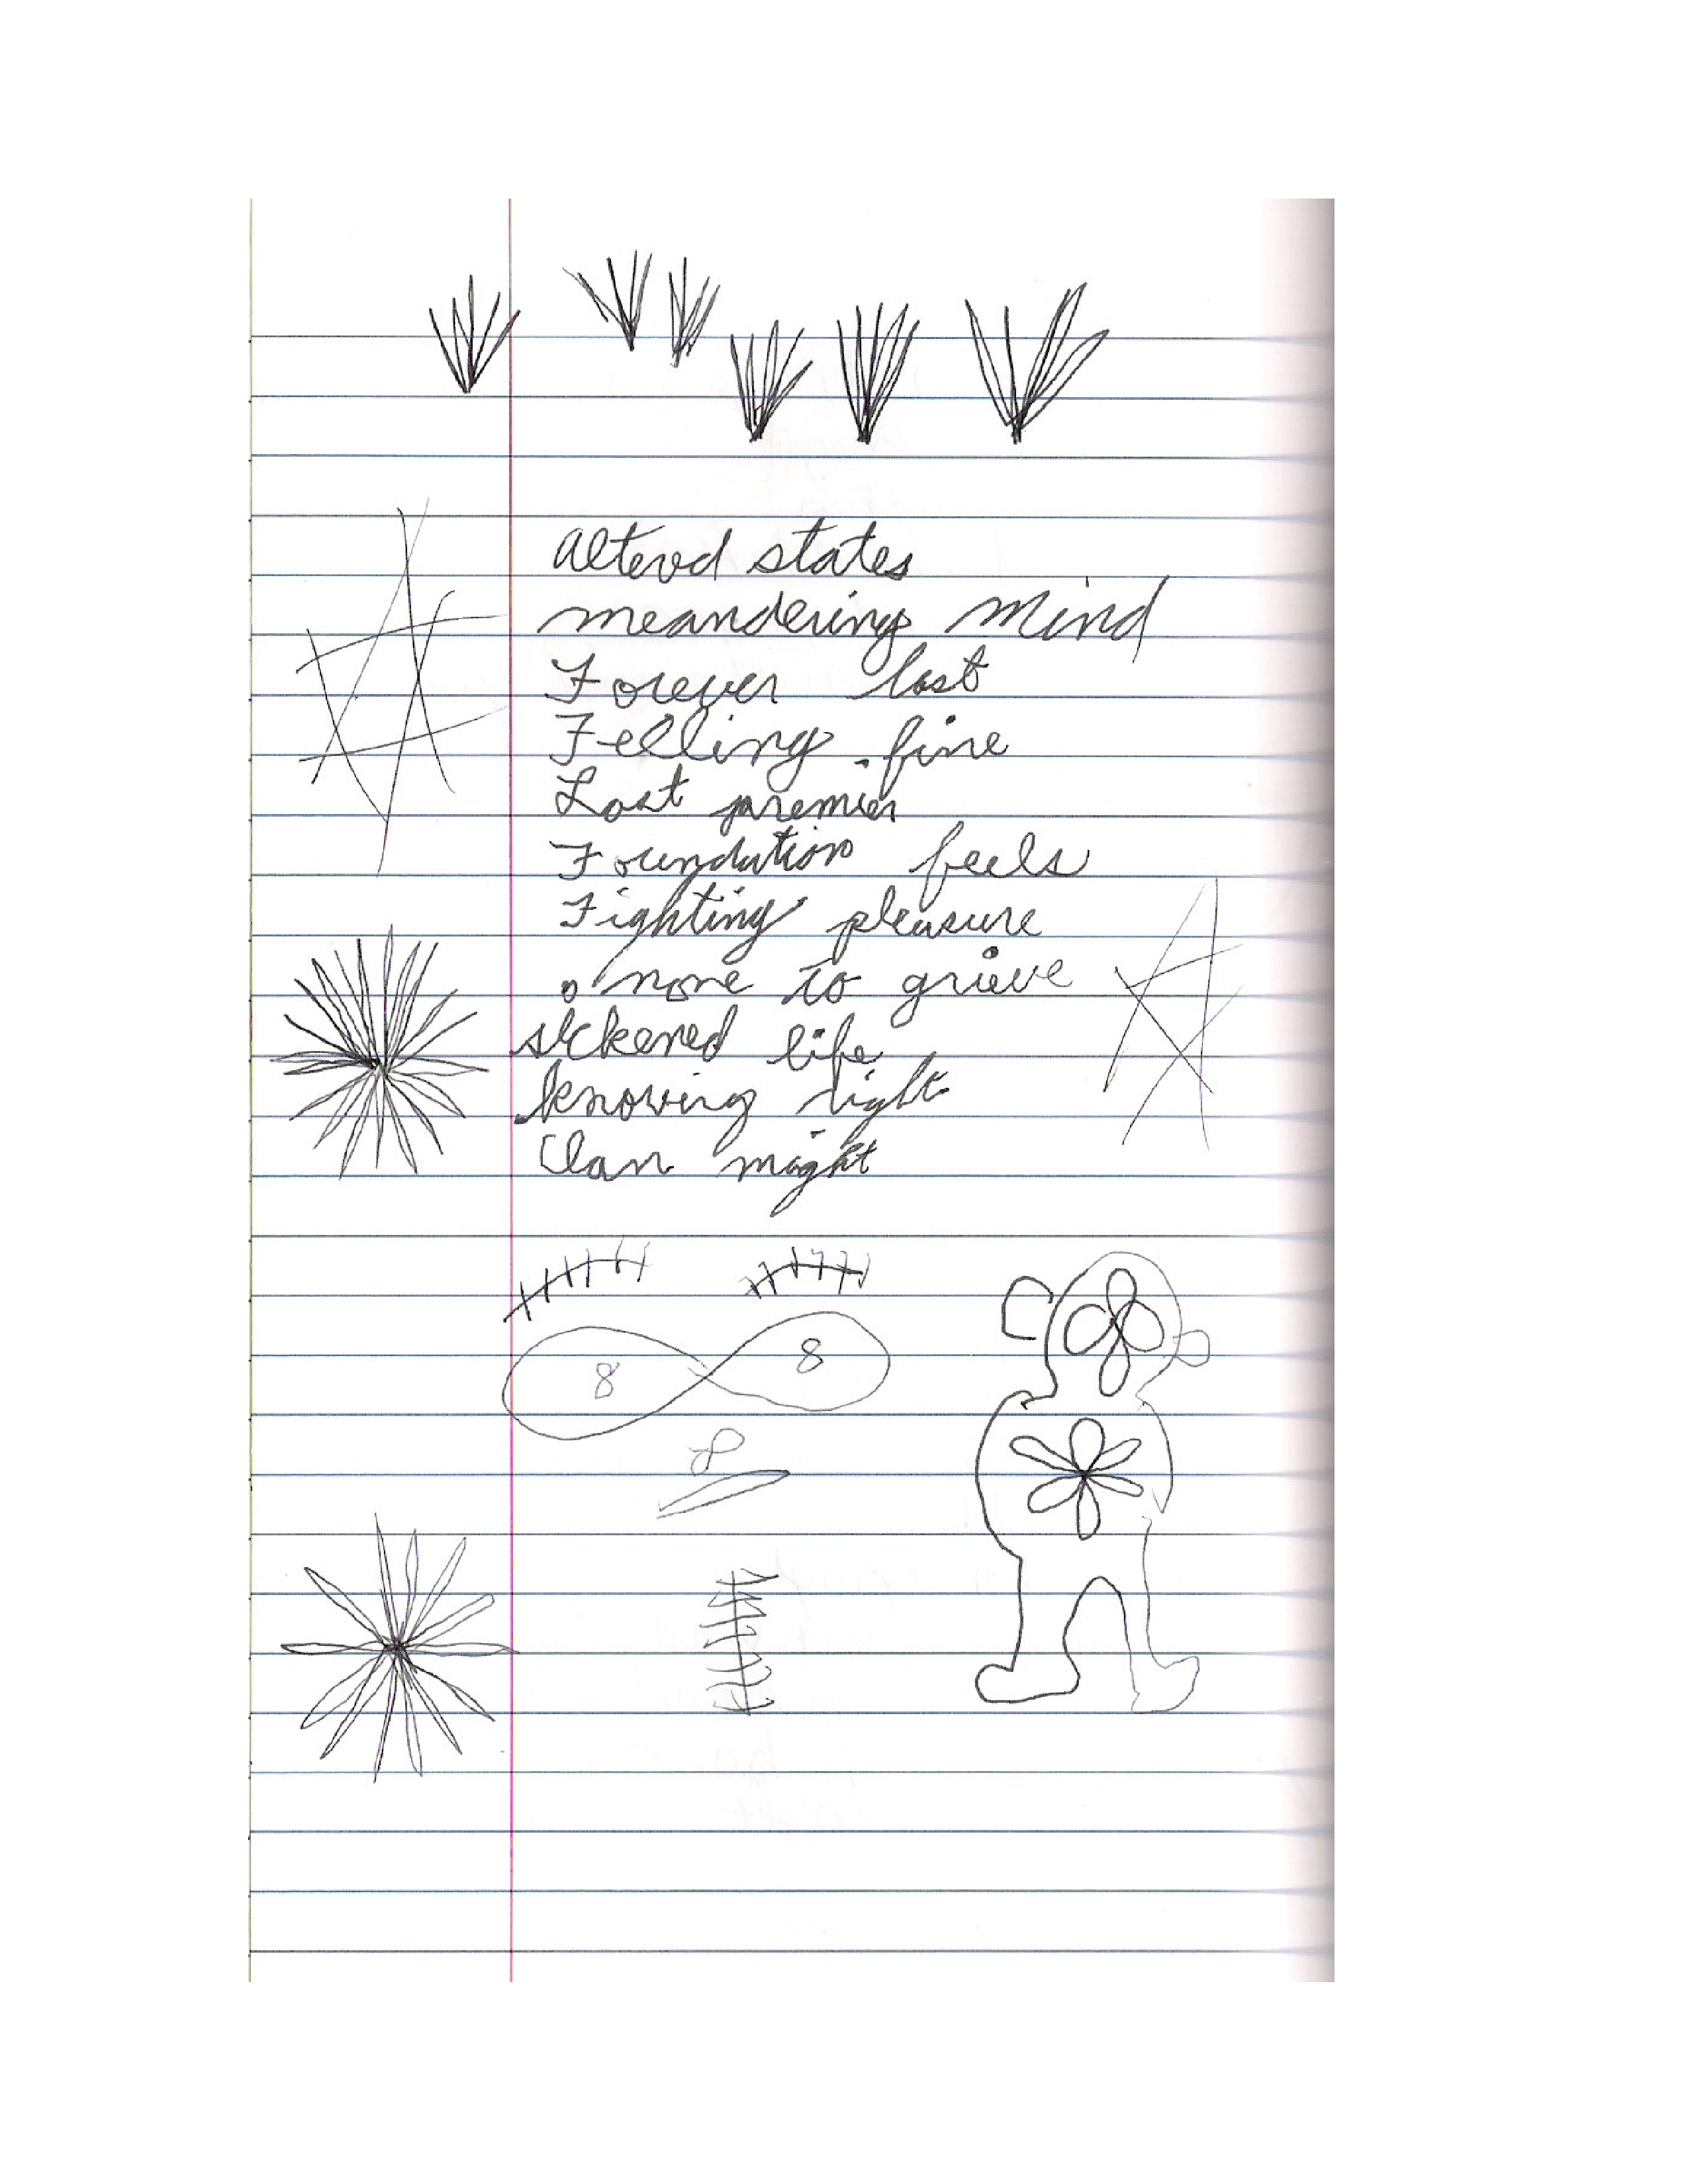 Altered states
meandering mind
Forever lost
Felling fine
Lost premier
Foundation feels
Fighting pleasure
none to grieve
sickened life
knowing right
Clan might
8 8
8